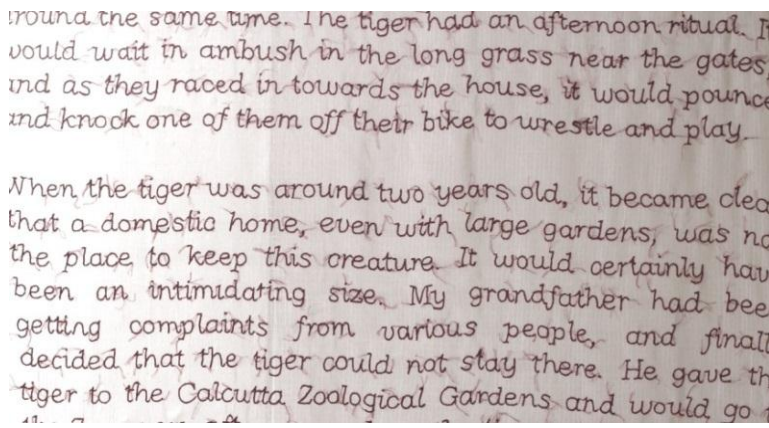 around the same time. The tiger had an afternoon ritual. It
would wait in ambush in the long grass near the gates,
and as they raced in towards the house, it would pounce
and knock one of them off their bike to wrestle and play.
When the tiger was around two years old, it became clea
that a domestic home, even with large gardens, was no
the place to keep this creature. It would certainly hav
been an intimidating size. My grandfather had bee
getting complaints from various people, and finall
decided that the tiger could not stay there. He gave th
tiger to the Calcutta Zoological Gardens and would go